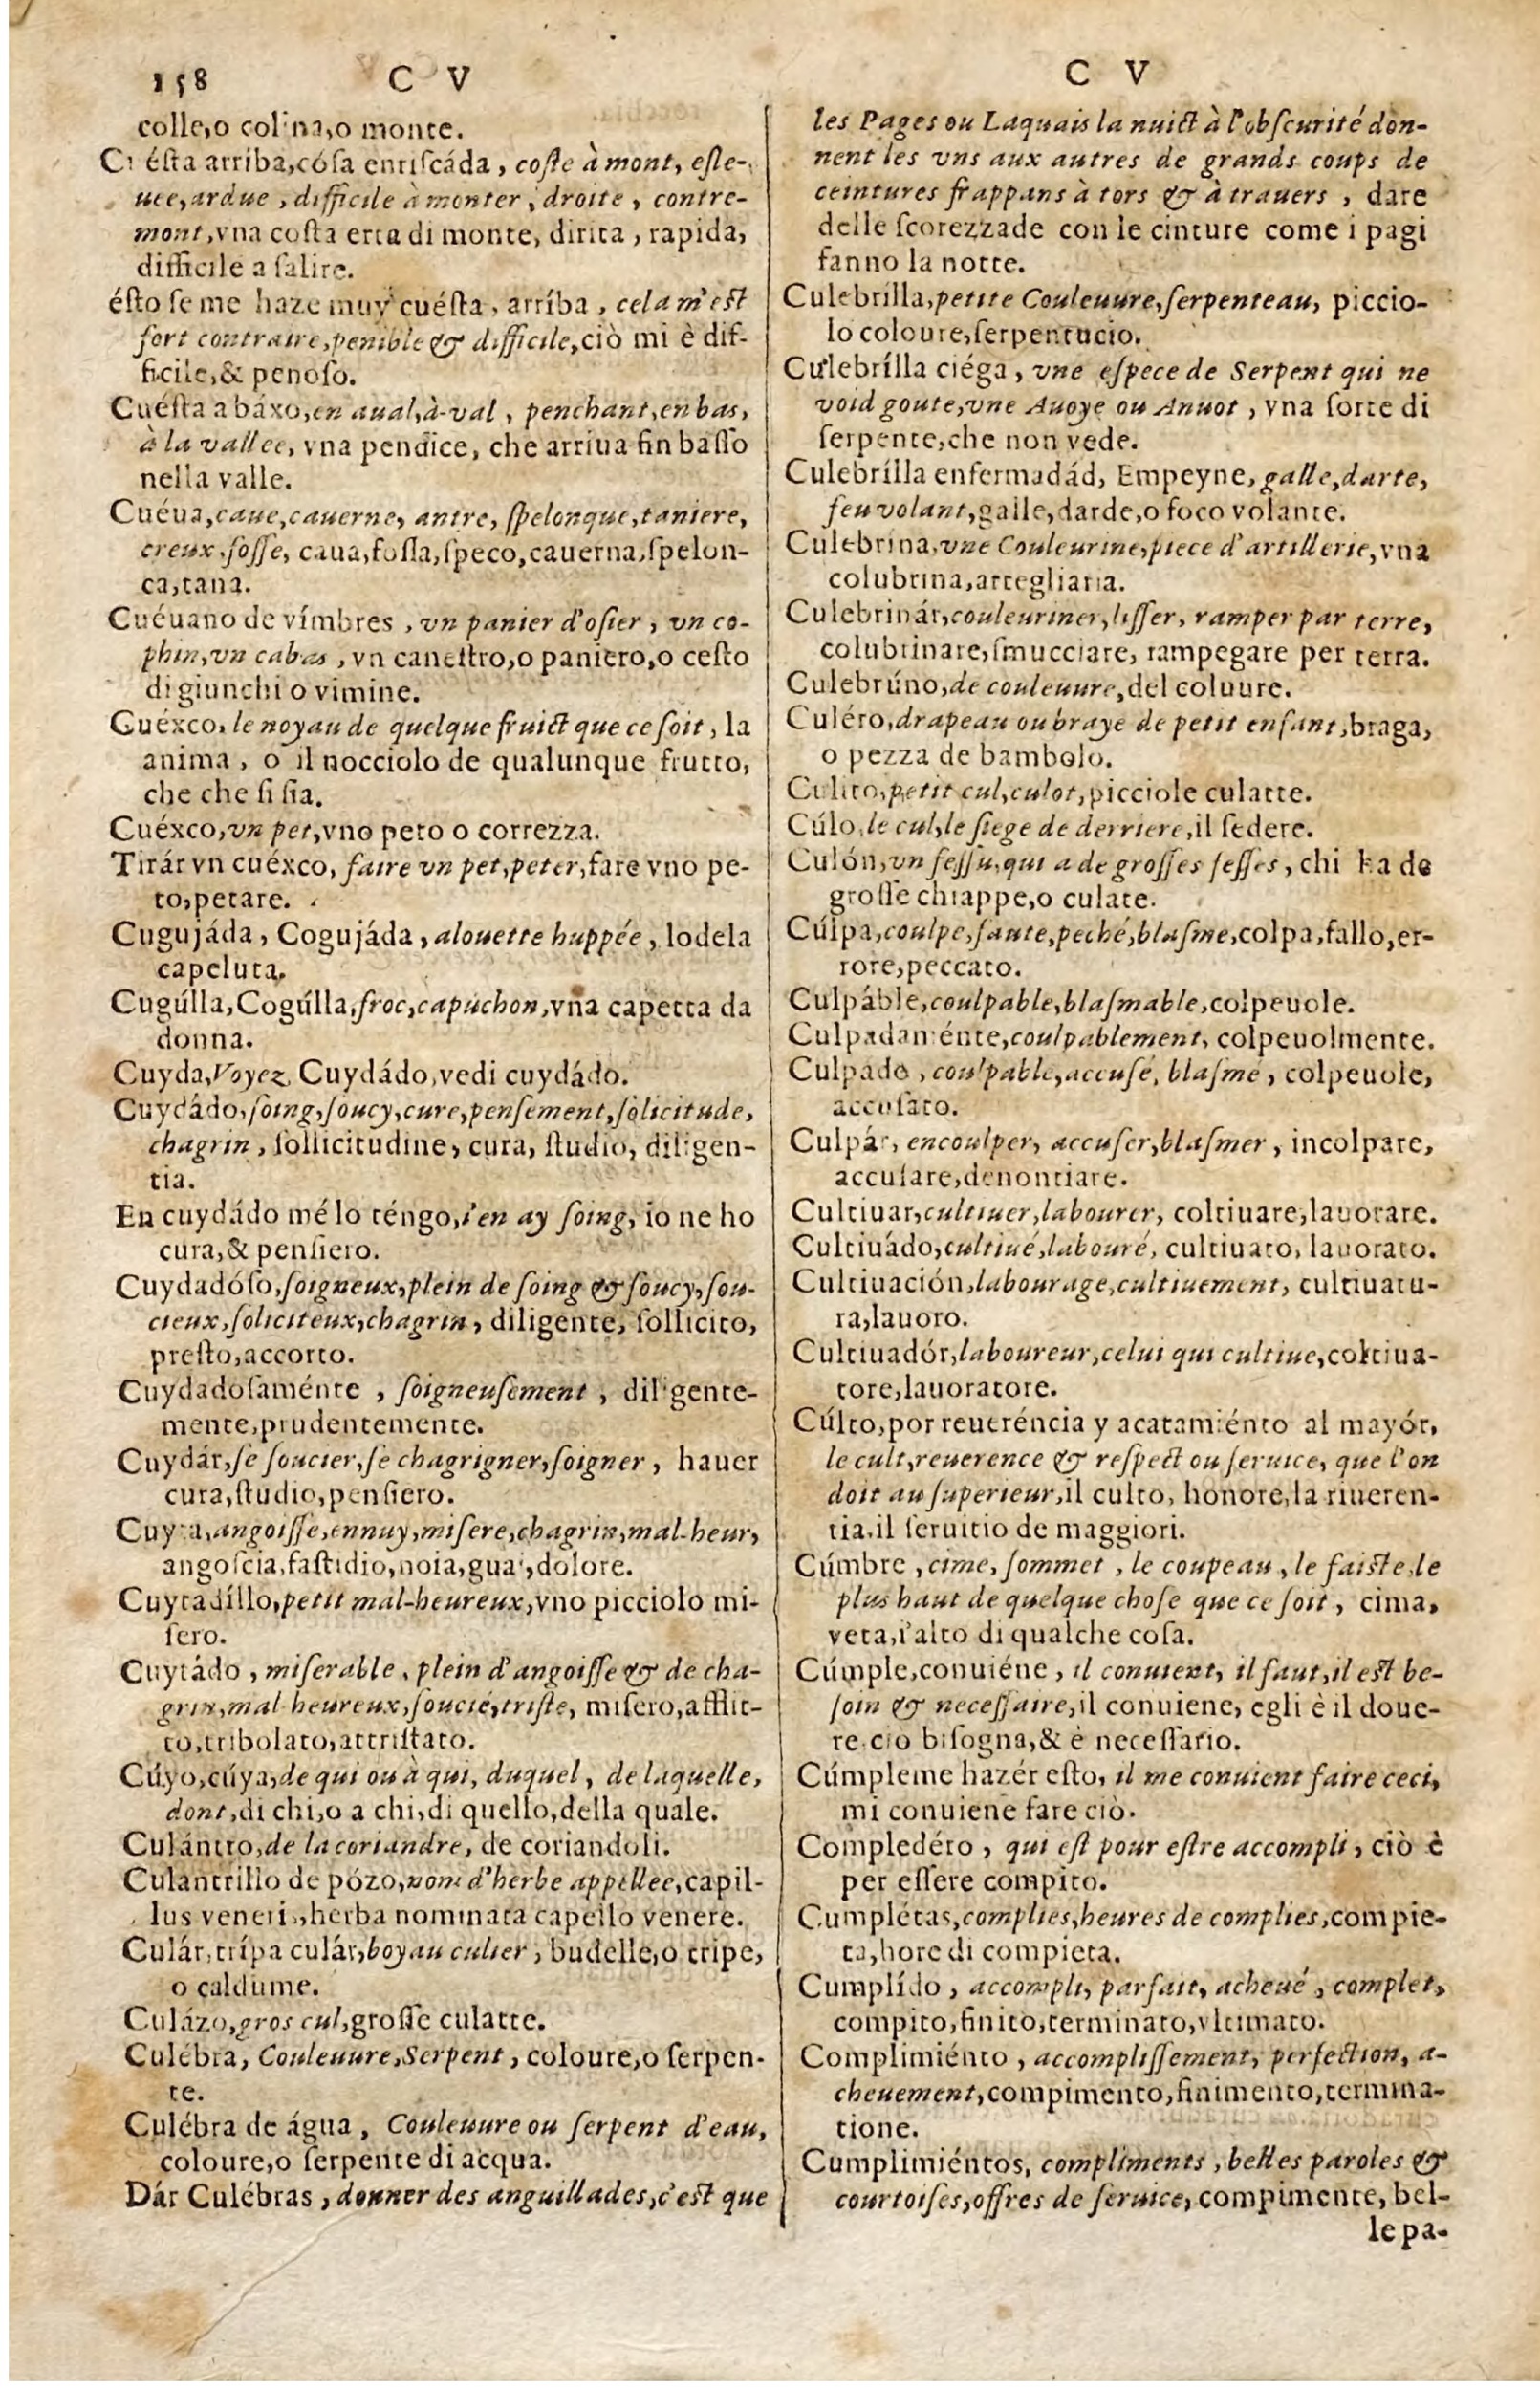 158 C V
colle,o colina,o monte.
Cuésta arriba,cósa enriſcáda, coſte à mont, eſle-
uee,ardue, difficile à monter, droite, contre-
mont,vna coſta erta di monte, dirita, rapida,
difficile a ſalire.
éſto ſe me haze muy cuéſta, arríba, cela m'eſt
fort contraire,penible & difficile,ciò mi è dif-
ficile,& penoſo.
Cuéſta abáxo,en aual,à-val, penchant,en bas,
à la vallee, vna pendice, che arriua fin baſſo
nella valle.
Cuéua,caue,cauerne, antre, ſpelonque,taniere,
creux,foſſe, caua,foſſa,ſpeco,cauerna,ſpelon-
ca,tana.
Cuéuano de vímbres, vn panier d'oſier, vn co-
phin,vn cabas, vn caneſtro,o paniero,o ceſto
di giunchi o vimine.
Cuéxco, le noyau de quelque fruict que ce ſoit, la
anima, o il nocciolo de qualunque frutto,
che che ſi ſia.
Cuéxco,vn pet,vno peto o correzza.
Tirár vn cuéxco, faire vn pet,peter,fare vno pe-
to,petare.
Cugujáda, Cogujáda, alouette huppée, lodela
capeluta.
Cugúlla,Cogúlla,froc,capuchon,vna capetta da
donna.
Cuyda,Voyez, Cuydádo,vedi cuydádo.
Cuydádo,ſoing,ſoucy,cure,penſement,ſolicitude,
chagrin, ſollicitudine, cura, ſtudio, diligen-
tia.
En cuydádo mé lo téngo,i'en ay ſoing, io ne ho
cura,& penſiero.
Cuydadóſo,ſoigneux,plein de ſoing & ſoucy,ſou-
cieux,ſoliciteux,chagrin, diligente, ſollicito,
preſto,accorto.
Cuydadoſaménte, ſoigneuſement, diligente-
mente,prudentemente.
Cuydár,ſe ſoucier,ſe chagrigner,ſoigner, hauer
cura,ſtudio,penſiero.
Cuyta,angoiſſe,ennuy,miſere,chagrin,mal-heur,
angoſcia,faſtidio,noia,guai,dolore.
Cuytadíllo,petit mal-heureux,vno picciolo mi-
ſero.
Cuytádo, miſerable, plein d'angoiſſe & de cha-
grin,mal heureux,ſoucié,triſte, miſero,afflit-
to,tribolato,attriſtato.
Cúyo,cúya,de qui ou à qui, duquel, de laquelle,
dont,di chi,o a chi,di quello,della quale.
Culántro,de la coriandre, de coriandoli.
Culantrillo de pózo,nom d'herbe appellee,capil-
lus veneris,herba nominata capello venere.
Culár,trípa culár,boyau culier, budelle,o tripe,
o caldume.
Culázo,gros cul,groſſe culatte.
Culébra, Couleuure,Serpent, coloure,o ſerpen-
te.
Culébra de água, Couleuure ou ſerpent d'eau,
coloure,o ſerpente di acqua.
Dár Culébras, donner des anguillades,c'eſt que
C V
les Pages ou Laquais la nuict à l'obſcurité don-
nent les vns aux autres de grands coups de
ceintures frappans à tors & à trauers, dare
delle ſcorezzade con le cinture come i pagi
fanno la notte.
Culebrílla,petite Couleuure,ſerpenteau, piccio-
lo coloure,ſerpentucio.
Culebrílla ciéga, vne eſpece de Serpent qui ne
void goute,vne Auoye ou Anuot, vna ſorte di
ſerpente,che non vede.
Culebrílla enfermadád, Empeyne, galle,darte,
feu volant,galle,darde,o foco volante.
Culebrina,vne Couleurine,piece d'artillerie,vna
colubrina,artegliaria.
Culebrinár,couleuriner,liſſer, ramper par terre,
colubrinare,ſmucciare, rampegare per terra.
Culebrúno,de couleuure,del coluure.
Culéro,drapeau ou braye de petit enfant,braga,
o pezza de bambolo.
Culito,petit cul,culot,picciole culatte.
Cúlo,le cul,le ſiege de derriere,il ſedere.
Culón,vn feſſu,qui a de groſſes feſſes, chi ha de
groſſe chiappe,o culate.
Cúlpa,coulpe,faute,peché,blaſme,colpa,fallo,er-
rore,peccato.
Culpáble,coulpable,blaſmable,colpeuole.
Culpadaménte,coulpablement, colpeuolmente.
Culpado, coulpable,accuſé, blaſmé, colpeuole,
accuſato.
Culpár, encoulper, accuſer,blaſmer, incolpare,
accuſare,denontiare.
Cultiuar,cultiuer,labourer, coltiuare,lauorare.
Cultiuádo,cultiué,labouré, cultiuato, lauorato.
Cultiuación,labourage,cultiuement, cultiuatu-
ra,lauoro.
Cultiuadór,laboureur,celui qui cultiue,coltiua-
tore,lauoratore.
Cúlto,por reueréncia y acatamiénto al mayór,
le cult,reuerence & reſpect ou ſeruice, que l'on
doit au ſuperieur,il culto, honore,la riueren-
tia,il ſeruitio de maggiori.
Cúmbre, cime, ſommet, le coupeau, le faiſte,le
plus haut de quelque choſe que ce ſoit, cima,
veta,l'alto di qualche coſa.
Cúmple,conuiéne, il conuient, il faut,il eſt be-
ſoin & neceſſaire,il conuiene, egli è il doue-
re ciò biſogna,& è neceſſario.
Cúmpleme hazér eſto, il me conuient faire ceci,
mi conuiene fare ciò.
Completéro, qui eſt pour eſtre accompli, ciò è
per eſſere compito.
Cumplétas,complies,heures de complies,compie-
ta,hore di compieta.
Cumplído, accompli, parfait, acheué, complet,
compito,finito,terminato,vltimato.
Complimiénto, accompliſſement, perfection, a-
cheuement,compimento,finimento,termina-
tione.
Cumplimiéntos, compliments, belles paroles &
courtoiſes,offres de ſeruice,compimente, bel-
le pa-